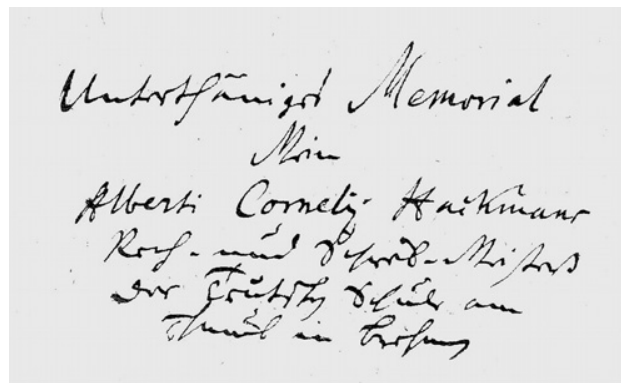 Unterthäniges Memorial
Mein
Alberti Cornelij Hackmans
Rech- und Schreib-Meisters
der Teutschen Schule am
Thumb in